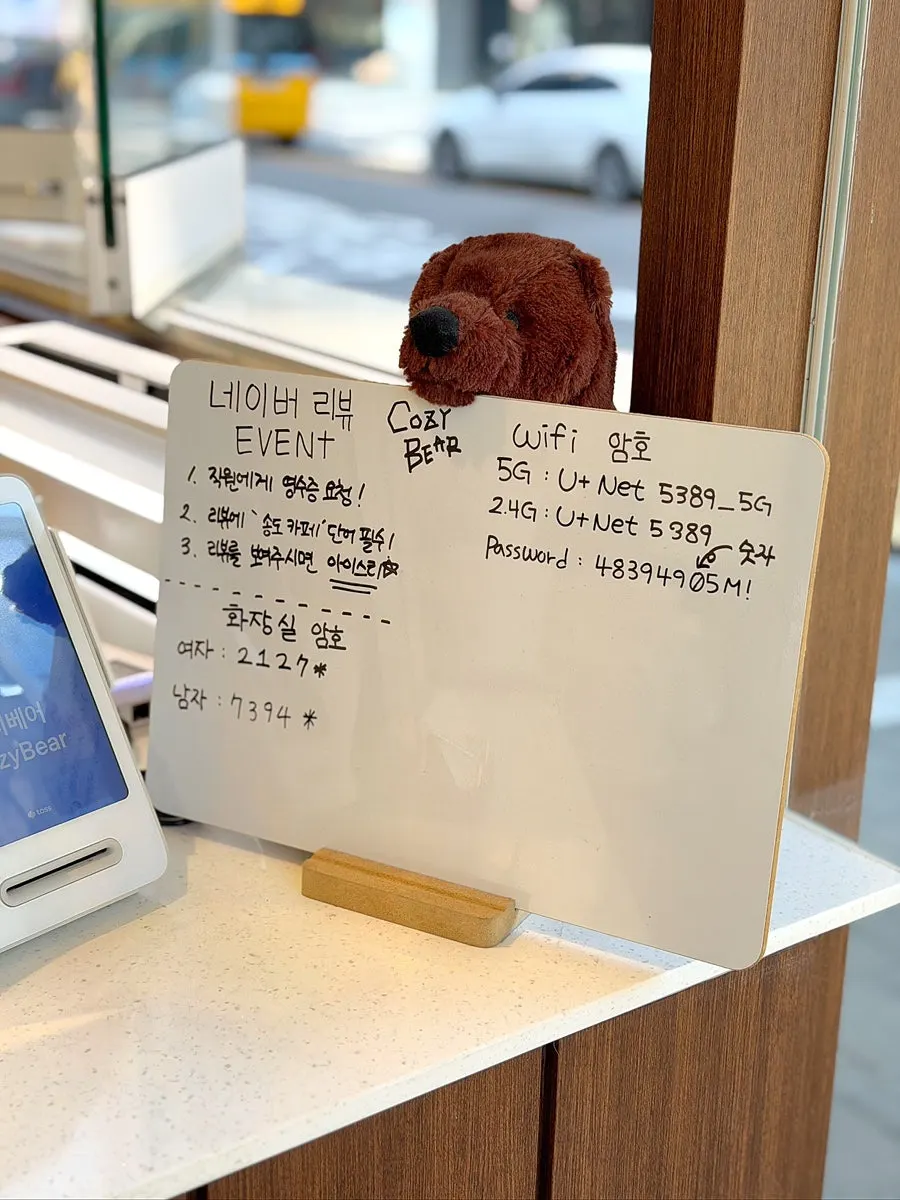 네이버 리뷰
EVENT
1. 직원에게 영수증 요청!
2. 리뷰에 '송도 카페' 단어 필수!
3. 리뷰를 보여주시면 아이스티☆
화장실 암호
여자 : 2127*
남자 : 7394 *
COZY
BEAR
wifi 암호
5G : U+ Net 5389_5G
2.4G : U+ Net 5389
숫자
Password : 48394905M!
베어
zyBear
toss